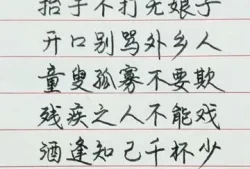 抬手不打无娘子
开口别骂外乡人
童叟孤寡不要欺
残疾之人不能戏
酒逢知己千杯少